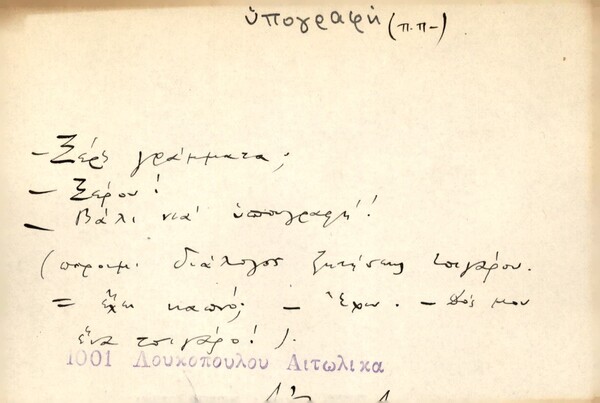 ὑπογραφή (π.π-)
– Ξέρς γράμματα;
– Ξέρου!
– Βάλι νιά ὑπογραφή!
(παροιμ. διάλογος ζητήσεως τσιγάρου.
= ἔχεις καπνό; – Ἔχω. – Δός μου
ἕνα τσιγάρο!).
1001 Λουκοπουλου Αιτωλικα